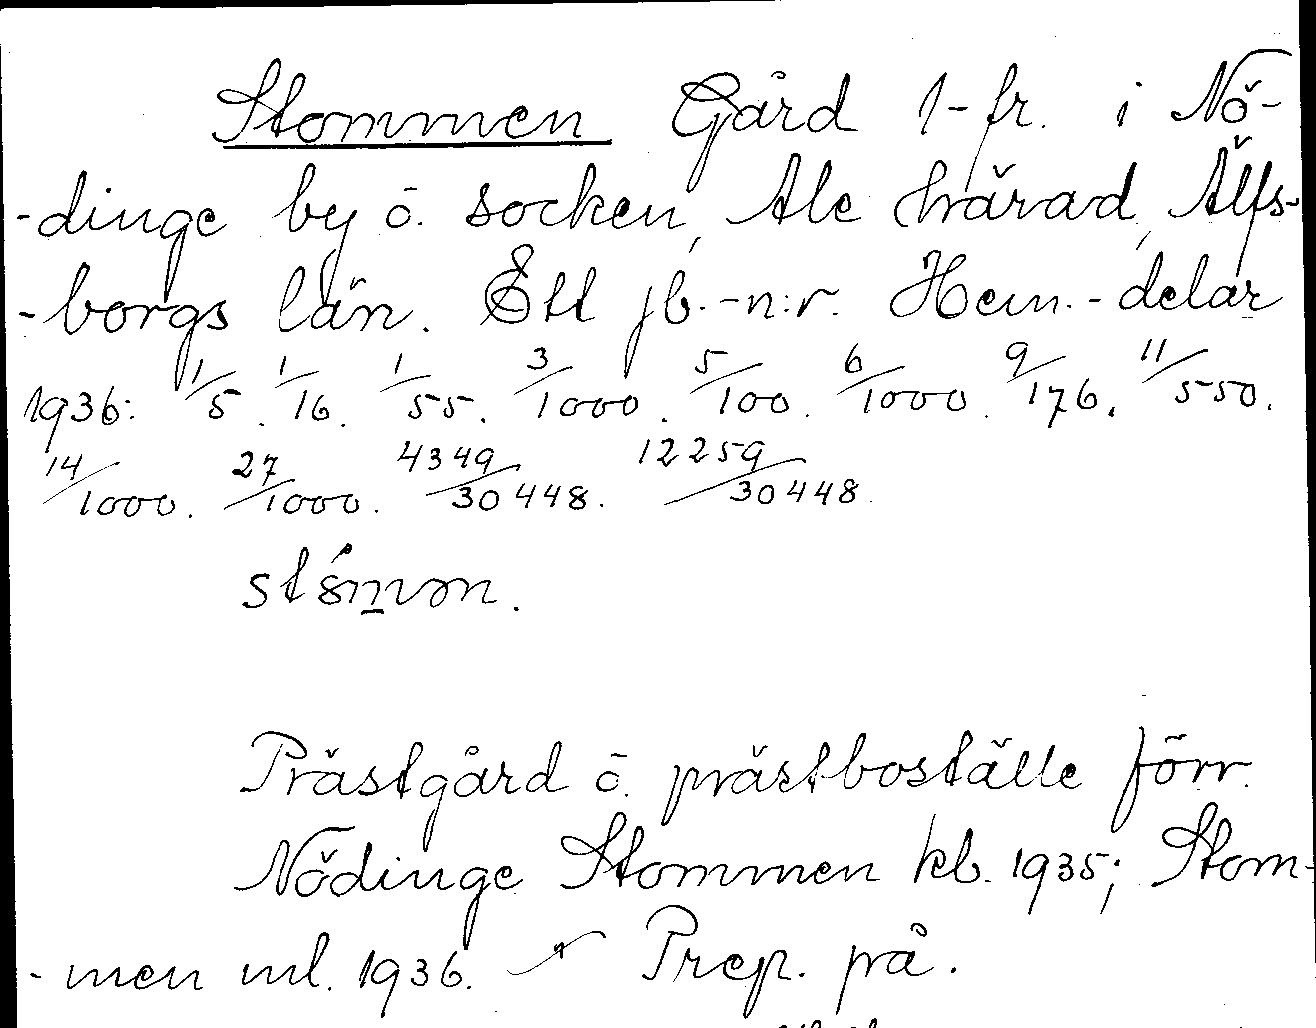 Stommen Gård 1-fr. i Nö-
-dinge by o. socken, Ale härad, Älfs-
-borgs län. Ett jb.-n:r. Hem.-delar
1936: 1/5. 1/16. 1/55. 3/1000. 5/100. 6/1000. 9/176. 11/550.
14/1000. 27/1000. 4349/30448. 12259/30448.
Prästgård o. prästboställe förr.
Nödinge Stommen kb. 1935; Stom-
-men ml. 1936. Prep. på.